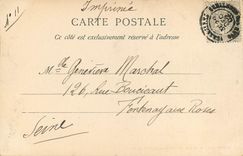 Imprimée
N° 11
CARTE POSTALE
Ce côté est exclusivement réservé à l'adresse
Mlle Geneviève Maréchal
126, Rue Boucicaut
Fontenay aux Roses
Seine